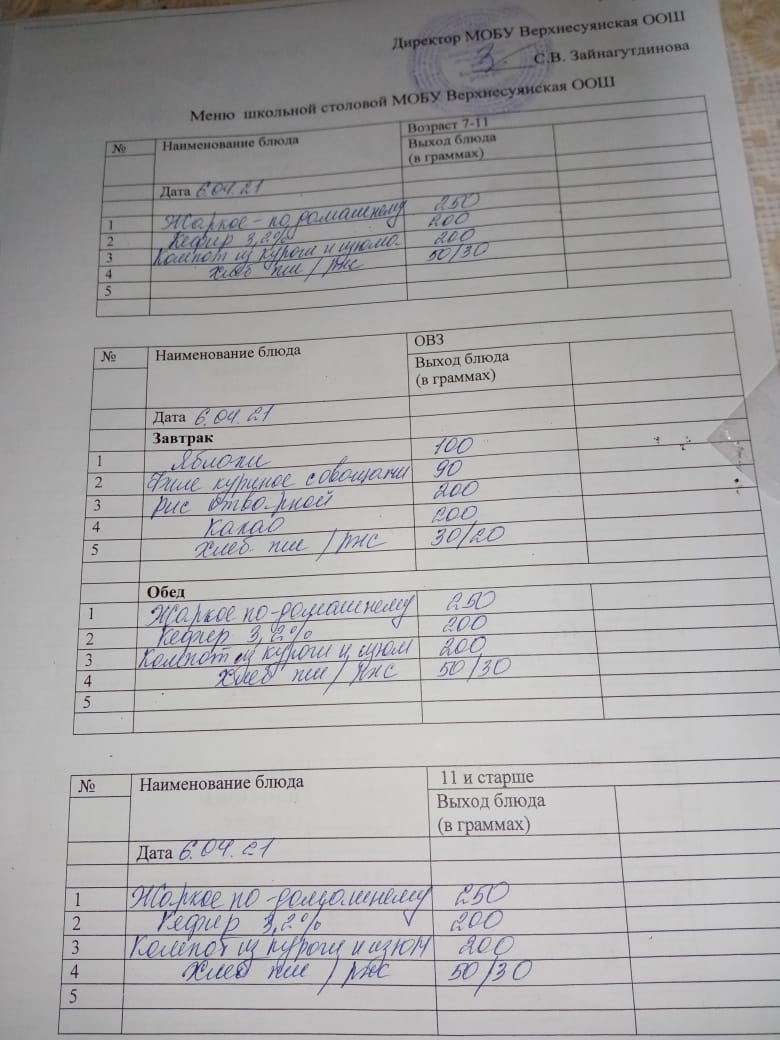 Директор МОБУ Верхнесуянская ООШ
С.В. Зайнагутдинова
Меню школьной столовой МОБУ Верхнесуянская ООШ
№ Наименование блюда Возраст 7-11
Выход блюда
(в граммах)
Дата 6.04.21
1 Жаркое-по домашнему 250
2 Кефир 3,2% 200
3 Компот из кураги и изюма. 200
4 Хлеб пш / ржс 50/30
5
№ Наименование блюда ОВЗ
Выход блюда
(в граммах)
Дата 6.04.21
Завтрак
1 Яблоки 100
2 Филе куриное с овощами 90
3 Рис отварной 200
4 Какао 200
5 Хлеб пш / ржс 30/20
Обед
1 Жаркое по-домашнему 250
2 Кефир 3,2% 200
3 Компот из кураги и изюм 200
4 Хлеб пш / ржс 50/30
5
№ Наименование блюда 11 и старше
Выход блюда
(в граммах)
Дата 6.04.21
1 Жаркое по-домашнему 250
2 Кефир 3,2% 200
3 Компот из кураги и изюм 200
4 Хлеб пш / ржс 50/30
5